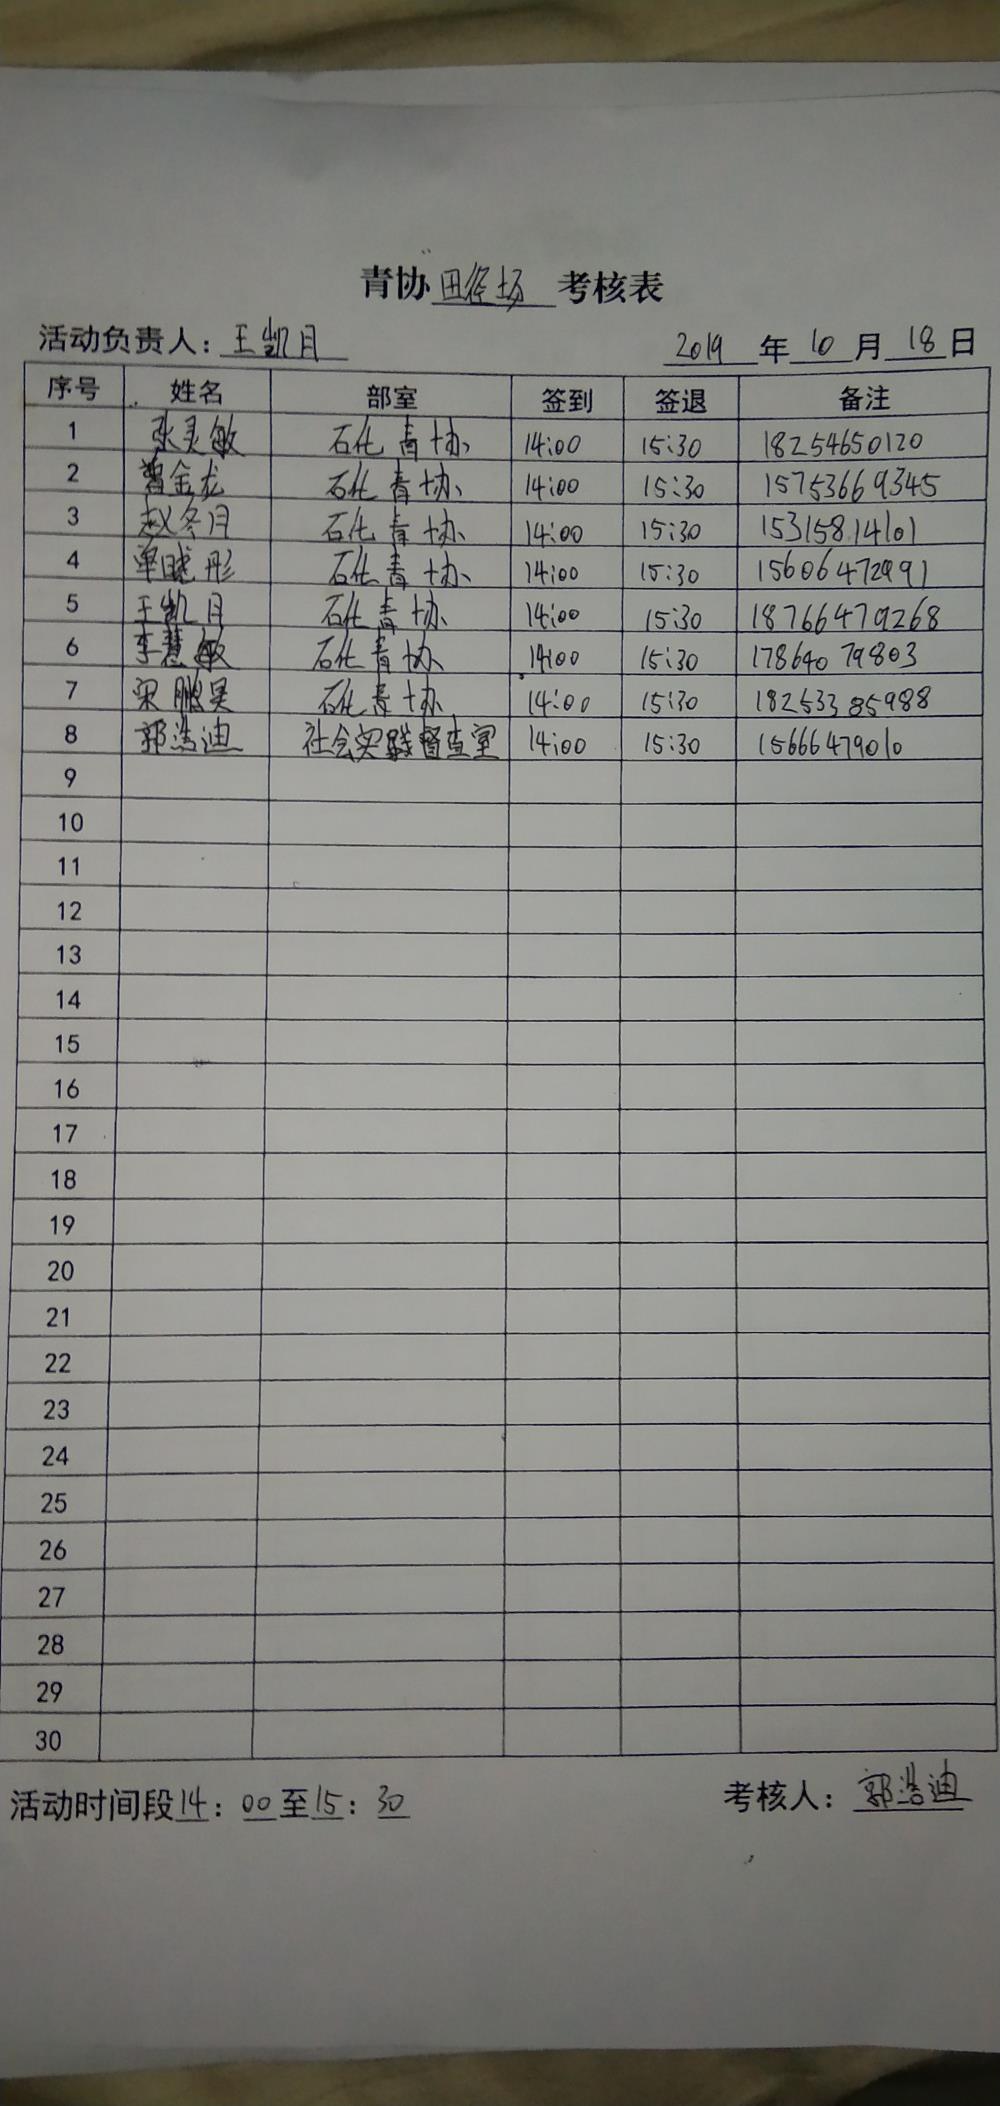 青协 田径场 考核表
活动负责人：王凯月 2019 年 10 月 18 日
序号 姓名 部室 签到 签退 备注
1 张灵敏 石化青协 14:00 15:30 18254650120
2 曾金龙 石化青协 14:00 15:30 15753669345
3 赵冬月 石化青协 14:00 15:30 15315814101
4 单晓彤 石化青协 14:00 15:30 15606472991
5 王凯月 石化青协 14:00 15:30 18766479268
6 李慧敏 石化青协 14:00 15:30 17864079803
7 宋鹏昊 石化青协 14:00 15:30 18253385988
8 郭浩迪 社会实践督查室 14:00 15:30 15666479010
9
10
11
12
13
14
15
16
17
18
19
20
21
22
23
24
25
26
27
28
29
30
活动时间段14：00至15：30 考核人：郭浩迪